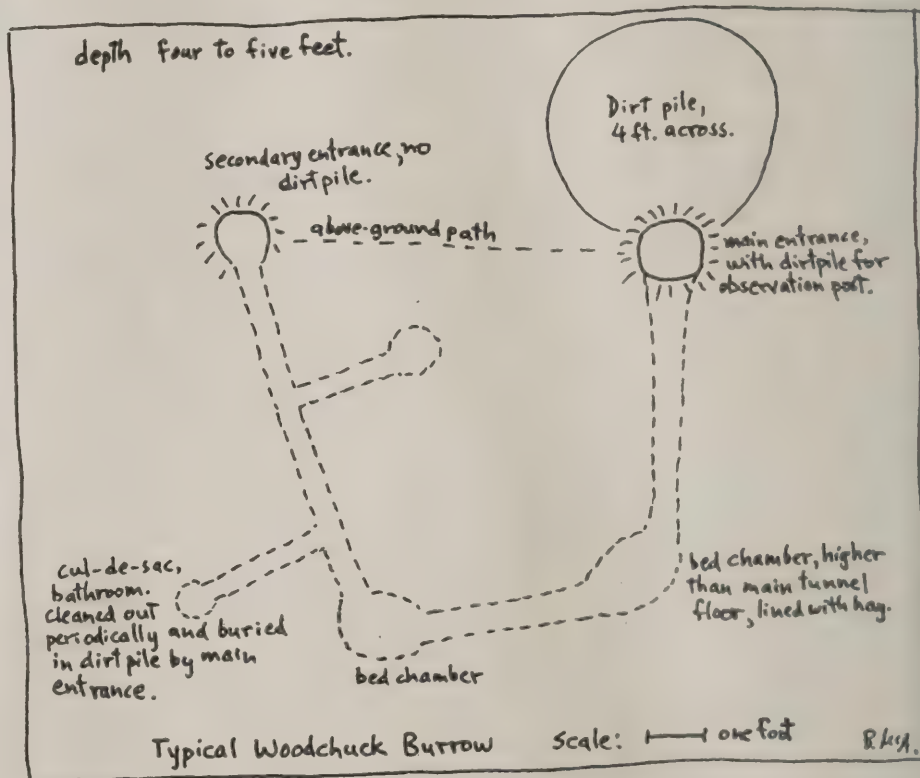 depth four to five feet.
Dirt pile,
4 ft. across.
secondary entrance, no
dirtpile.
above-ground path
main entrance,
with dirtpile for
observation post.
cul-de-sac,
bathroom.
cleaned out
periodically and buried
in dirt pile by main
entrance.
bed chamber, higher
than main tunnel
floor, lined with hay.
bed chamber
Typical Woodchuck Burrow
Scale: one foot